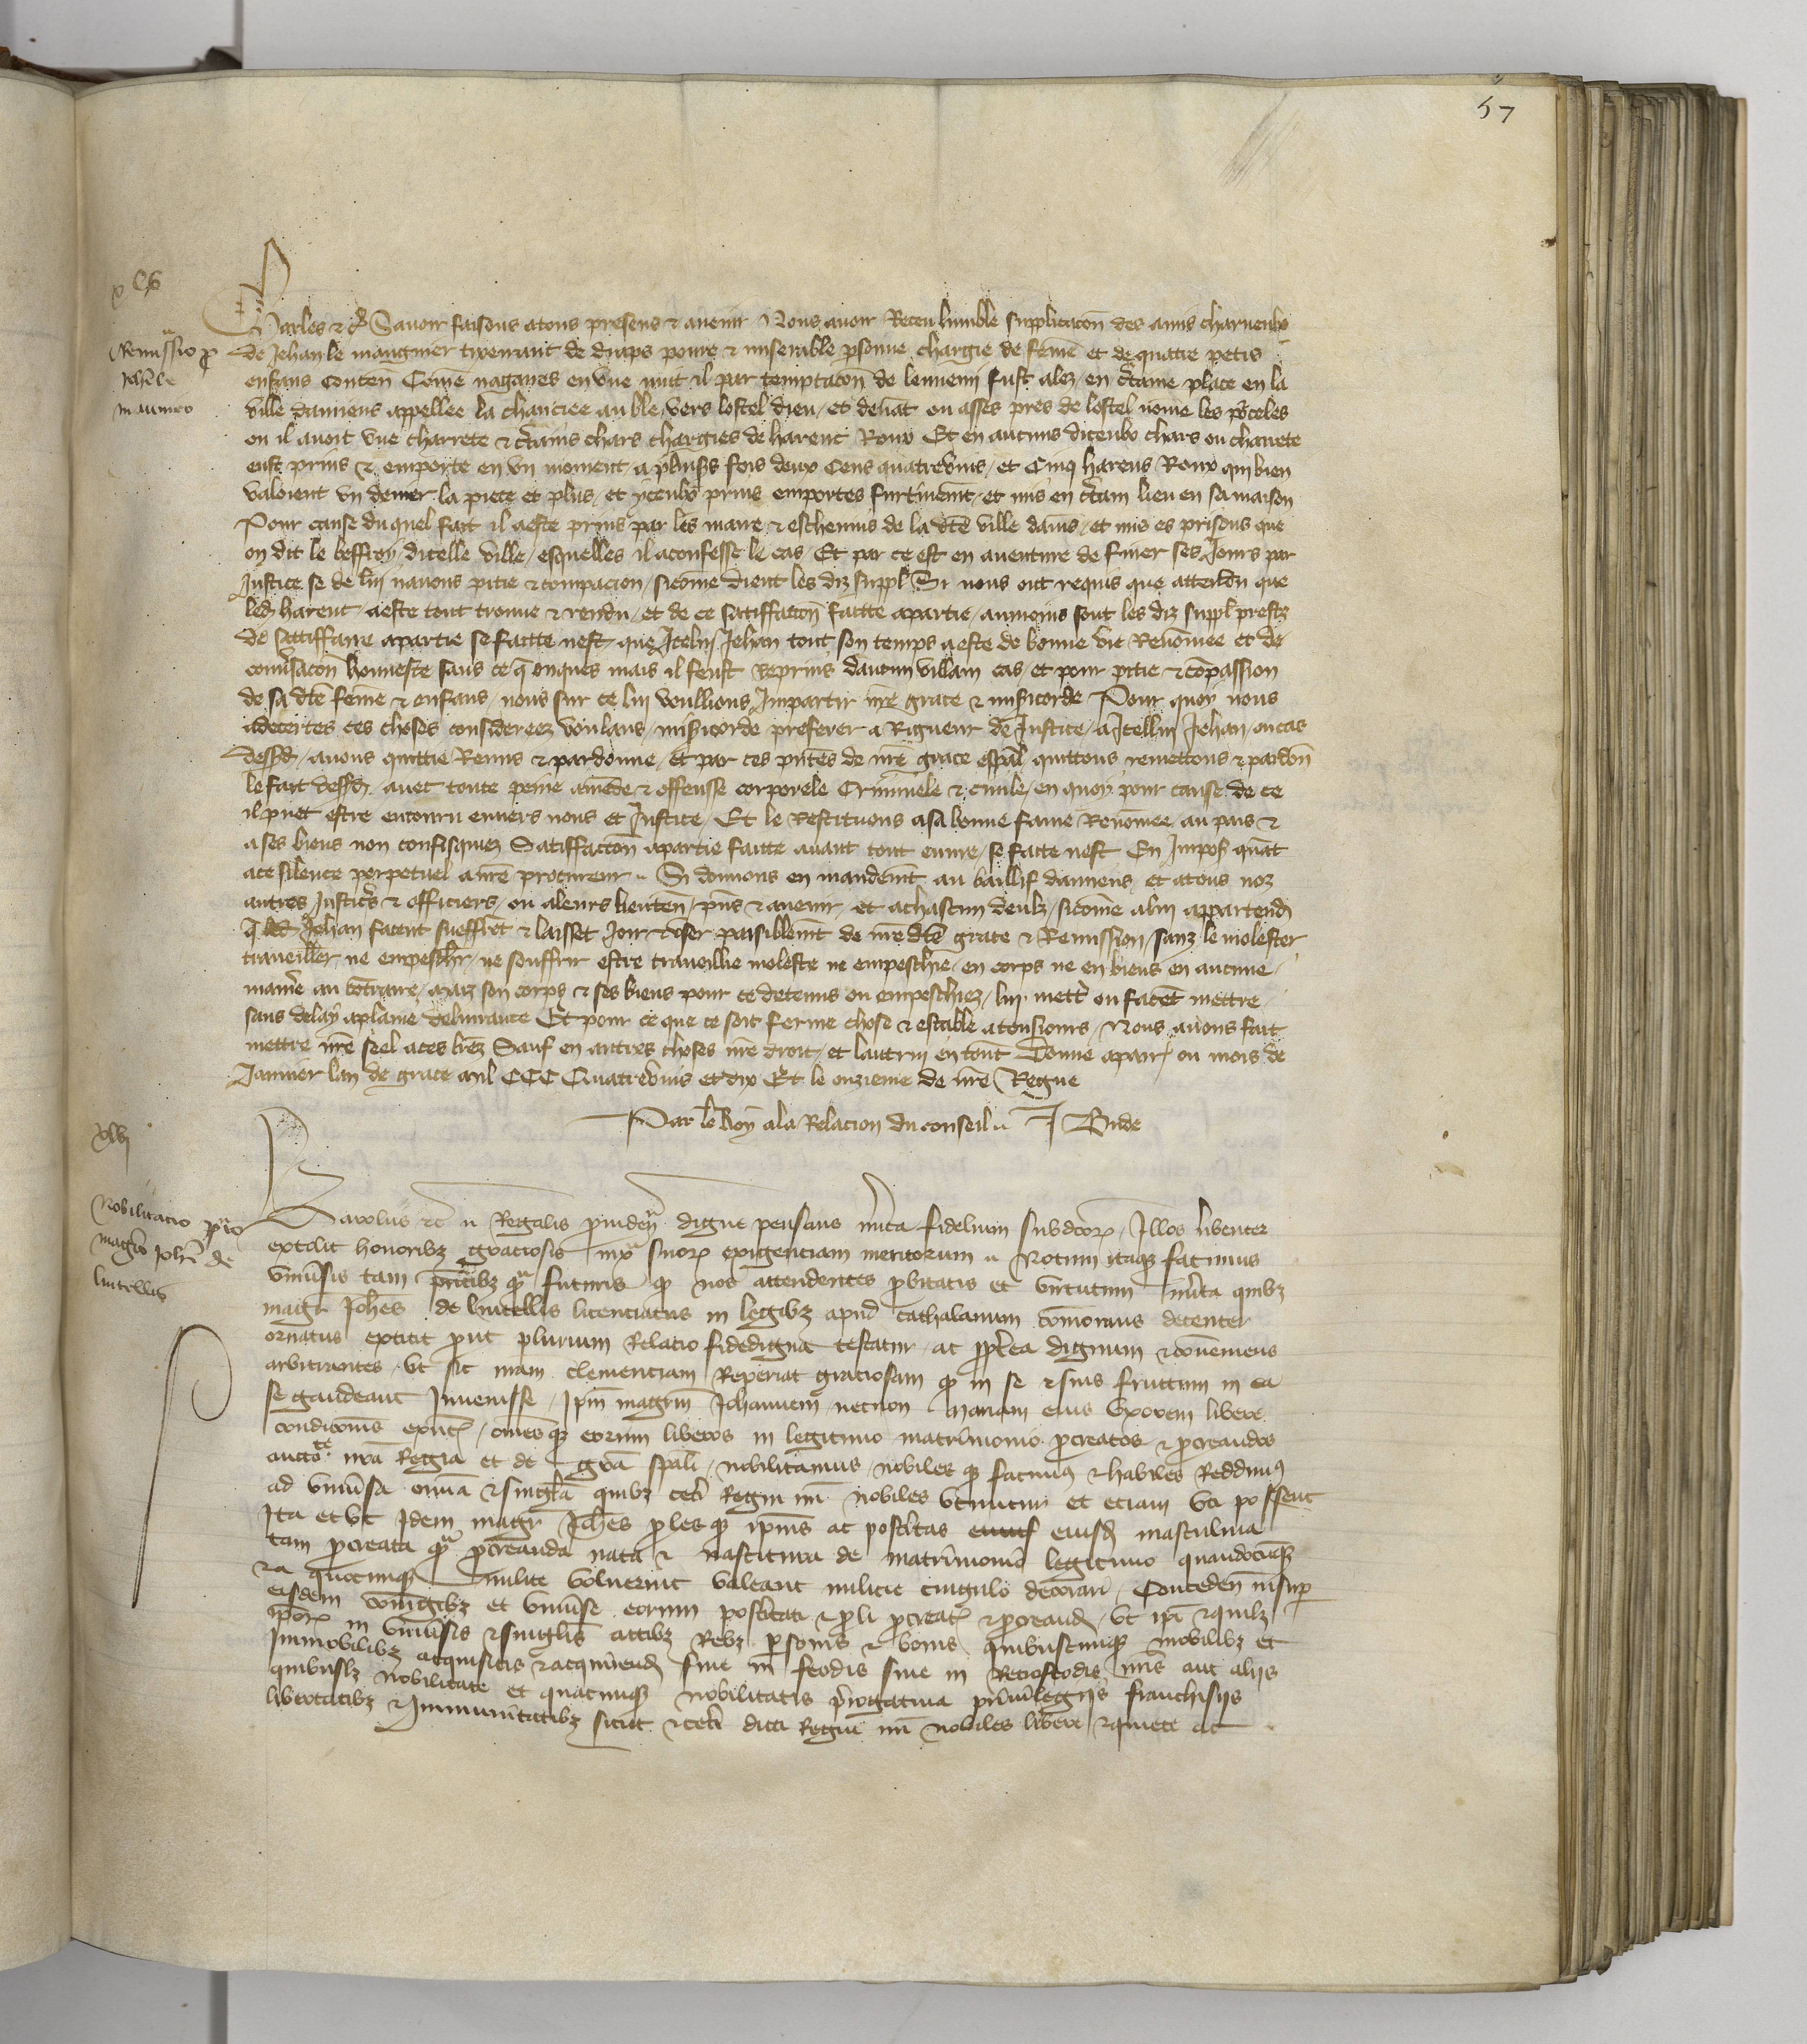 57
Charles &c Savoir faisons a tous presens & avenir Nous avoir Receu humble supplicacon des amis charnenlx
Remissio p
de Jehan le maugnier tixerrant de draps povre & miserable psonne chargie de feme et de quatre petis
Johe le
enfans conten Come nagaires en une nuit il par temptacon de lennemi fust alez en ctaine place en la
ville damiens appellee la chauciee au ble vers lostel dieu et devat ou asses pres de lostel nome les pceles
ou il avoit une charrete & ctains chars chargies de harenc Roux Et en aucuns diceulx chars ou charrete
eust prins & emporte en un moment a plusrs fois deux Cens quatrevins et Cinq harens Roux qui bien
valoient un denier la piece et plus et yceulx prins emportes furtivemt et mis en ctain lieu en sa maison
Pour cause du quel fait il a este prins par les maire & eschevins de la dte ville damis et mis es prisons que
on dit le beffroy dicelle ville esquelles il a confesse le cas Et par ce est en aventure de finer ses Jours par
Justice se de lui navons pitie & compacion sicome dient les diz suppl Si nous ont requis que attendu que
led harenc a este tout trouve & rendu et de ce satiffacon faitte a partie au moins sont les diz suppl prestz
de satiffaire a partie se faitte nest que Icelui Jehan tout son temps a este de bonne vie Renomee et de
conversacon honneste sans ce q onques mais il feust Reprins daucun villain cas et pour pitie & copassion
de sa dte feme & enfans nous sur ce lui voullions Impartir nre grace & misicorde Pour quoy nous
adecertes ces choses considereez voulans misicorde preferer a Rigueur de Justice a Icellui Jehan ou cas
dessd avons quittie Remis & pardonne et par ces pntes de nre grace espal quittons remettons & pardon
le fait dessd avec toute peine amede & offensse corporele Criminele & civile en quoy pour cause de ce
il puet estre encouru envers nous et Justice Et le Restituons a sa bonne fame Renomee au pais &
a ses biens non confisquiez Satiffacon a partie faitte avant tout euvre se faite nest En Impos quat
a ce silence perpetuel a nre procureur Si donnons en mandemt au baillif damiens et a tous noz
autres Justicrs & officiers ou a leurs lieuten pns & avenir et a chascun deulx sicome a lui appartend
q led Jehan facent sueffret & laisset Joir & user paisiblemt de nre dte grace & Remission sanz le molester
traveillier ne empeschr ne souffrir estre traveillie moleste ne empeschie en corps ne en biens en aucune
manie au cotraire maiz son corps & ses biens pour ce detenus ou empeschiez lui mett ou facet mettre
sans delay a plaine delivrance Et pour ce que ce soit ferme chose & estable a tousjours Nous avons fait
mettre nre seel a ces lrez Sauf en autres choses nre droit et lautrui en tout Donne a paris ou mois de
Janvier lan de grace mil CCC Quatrevins et dix Et le onzieme de nre Regne
Par le Roy a la Relacion du conseil J Bude
xlvj
Nobilitacio pro
magro Johe de
luitellis
Karolus &c Regalis providen digne pensans mita fidelium subdcorz Illos libenter
extolit honoribz graciosis iux suorz exigenciam meritorum Notum itaqz facimus
univsis tam pntibz qz futuris qz nos attendentes pbitatis et virtutum mita quibz
magr Johes de luitellis licenciatus in legibz apud cathalanum comorans decenter
ornatus extitit put plurium Relatio fidedigna testatur ac ppterea dignum & conveniens
arbitrantes ut sic nram clemenciam Reperiat graciosam qz in se & suis fructum in ea
se gaudeant Invenisse Ipm magrm Johannem necnon Mariam eius Uxorem libere
condicionis exntes omesqz eorum liberos in legitimo matrimonio pcreatos & pcreandos
auctote nra Regia et de gra spali nobilitamus nobiles qz facimus & habiles Reddimus
ad univsa omnia & singla quibz ceti Regni nri nobiles utuntur et eciam uti possent
Ita et ut Idem magr Johes ples qz ipius ac postitas eiusd masculina
tam pcreata qz pcreanda nata & nascitura de matrimonio legitimo quandocumqz
& a quocumqz milite voluerint valeant milicie cingulo decorari Conceden insup
eisdem coniugibz et univse eorum posteritati & pli pcreate & pcreand ut ipi & quilz
ipsorz in univsis & singlis actibz Rebz psonis & bonis quibuscumqz mobilibz et
Immobilibz acquisitis & acquirend sive in feodis sive in Retrofeodis nris aut aliis
quibuslz nobilitate et quacumqz nobilitatis prerogativa privilegijs franchisijs
libertatibz & Immunitatibz sicut & ceti dicti Regni nri nobiles libere & quiete ac